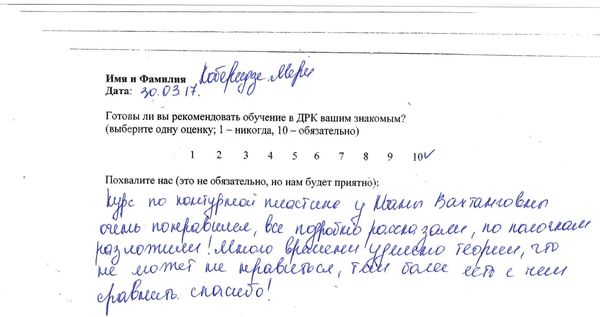 Имя и Фамилия Коберидзе Мери
Дата: 30.03.17.
Готовы ли вы рекомендовать обучение в ДРК вашим знакомым?
(выберите одну оценку; 1 – никогда, 10 – обязательно)
1 2 3 4 5 6 7 8 9 10✓
Похвалите нас (это не обязательно, но нам будет приятно):
Курс по контурной пластике у Маны Вахтанговны
очень понравился, все подробно рассказали, по полочкам
разложили! Много времени уделено теории, что
не может не нравиться, тем более есть с чем
сравнить. спасибо!